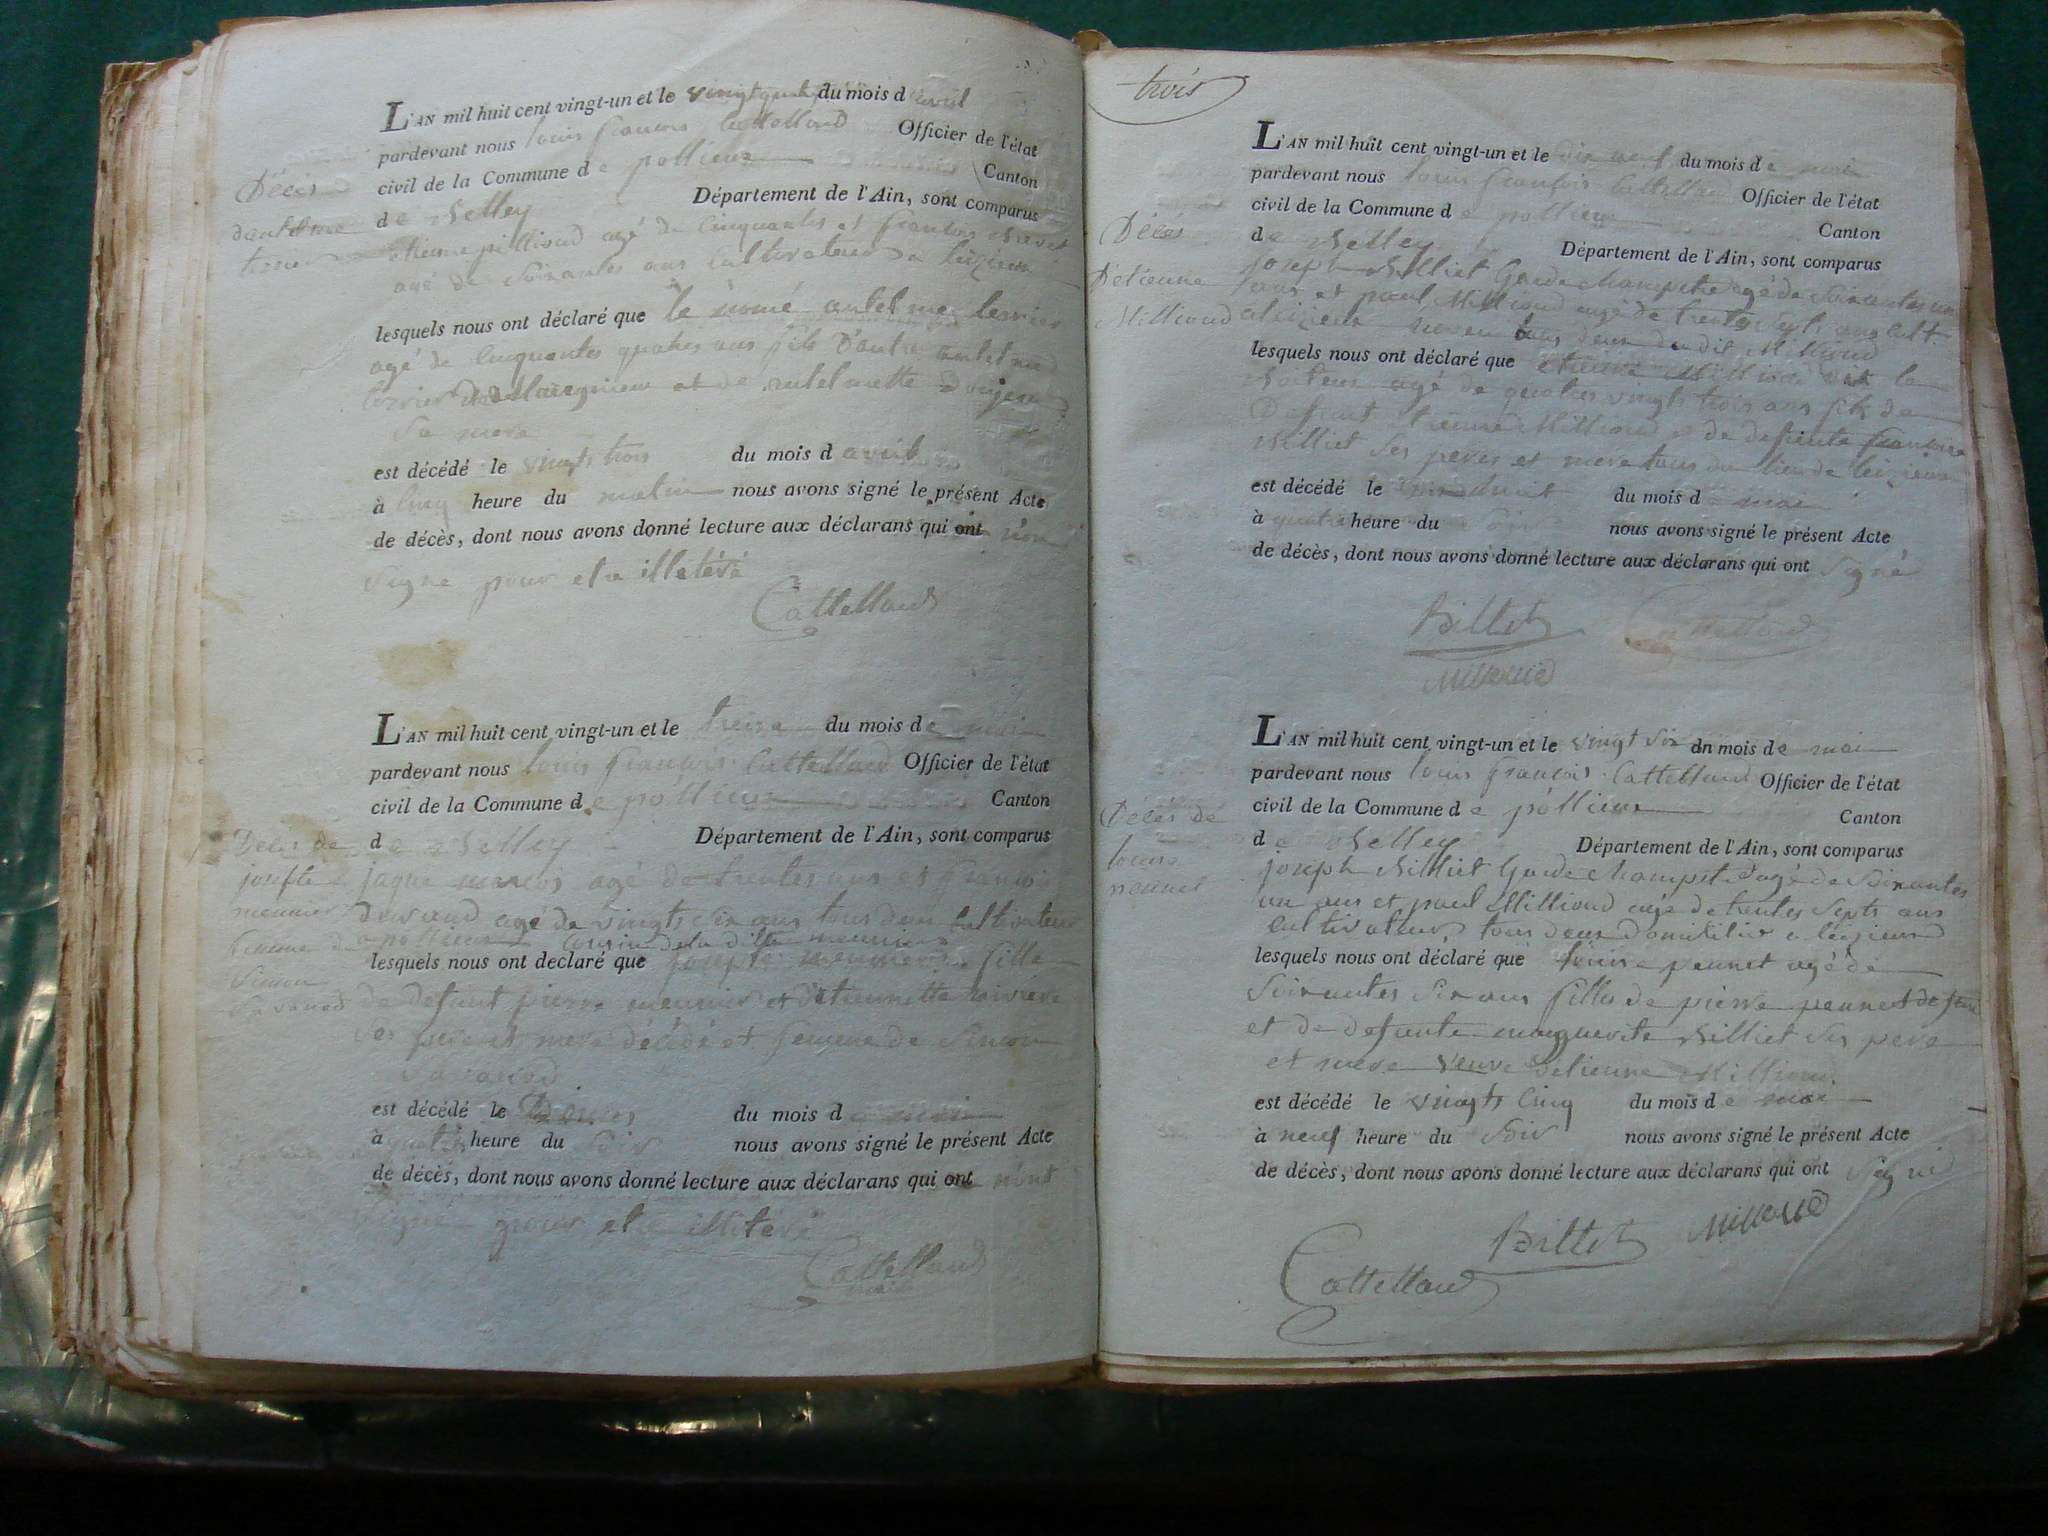 L'AN mil huit cent vingt-un et le vingt quatre du mois d avril
pardevant nous louis françois Cattelland Officier de l'état
civil de la Commune d e pollieux Canton
d e Belley Département de l'Ain, sont comparus
Décès
d'antelme
terrier
etienne pillioud agé de Cinquantes et françois
agé de Soixantes ans Cultivateur a leizieux
lesquels nous ont déclaré que le nomé antelme terrier
agé de Cinquantes quatres ans fils D'autre antelme
terrier de et de antelmette
Sa mere
est décédé le vingts trois du mois d avril
à Cinq heure du matin nous avons signé le présent Acte
de décès, dont nous avons donné lecture aux déclarans qui ont non
Signe pour etre illetéré
Cattelland
L'AN mil huit cent vingt-un et le treize du mois d e mai
pardevant nous louis françois Cattelland Officier de l'état
civil de la Commune d e pollieux Canton
d e Belley Département de l'Ain, sont comparus
Décès de
josepte
meunier
femme de
Simon
Savanod
jaque agé de trentes ans et françois
durand agé de vingts Six ans tous deux Cultivateur
a pollieux Cousin de la ditte meunier
lesquels nous ont declaré que josepte meunier fille
de defunt pierre meunier et d'etiennette
Ses pere et mere décédé et femme de Simon
Savanod
est décédé le Douzes du mois d e mai
à quatre heure du Soir nous avons signé le présent Acte
de décès, dont nous avons donné lecture aux déclarans qui ont n'ont
Signé pour etre illiteré
Cattelland
trois
L'AN mil huit cent vingt-un et le dix neuf du mois d e mai
pardevant nous louis françois Cattelland Officier de l'état
civil de la Commune d e pollieux Canton
d e Belley Département de l'Ain, sont comparus
Décès
D'etienne
Millioud
joseph Billiet Garde Champetre agé de Soixantes un
ans et paul Millioud agé de trentes Septs ans cult.
a leizieux neveu tous deux du dit Millioud
lesquels nous ont déclaré que etienne Millioud dit le
Boiteux agé de quatres vingts trois ans fils de
Defunt etienne Millioud et de defunte françoise
Billiet Ses peres et mere tous du lieu de leizieux
est décédé le dix huit du mois d e mai
à quatre heure du Soir nous avons signé le présent Acte
de décès, dont nous avons donné lecture aux déclarans qui ont Signé
Billet Cattelland
Millioud
L'AN mil huit cent vingt-un et le vingt six dn mois d e mai
pardevant nous louis françois Cattelland Officier de l'état
civil de la Commune d e pollieux Canton
d e Belley Département de l'Ain, sont comparus
Décès de
louise
pennet
joseph Billiet Garde Champetre agé de Soixantes
un ans et paul Millioud agé de trentes Septs ans
Cultivateur tous deux domicilié a leizieux
lesquels nous ont déclaré que louise pennet agé de
Soixantes Six ans fille de pierre pennet defunt
et de defunte marguerite Billiet Ses pere
et mere veuve d'etienne Millioud
est décédé le vingts Cinq du mois d e mai
à neuf heure du Soir nous avons signé le présent Acte
de décès, dont nous avons donné lecture aux déclarans qui ont Signé
Billet Millioud
Cattelland